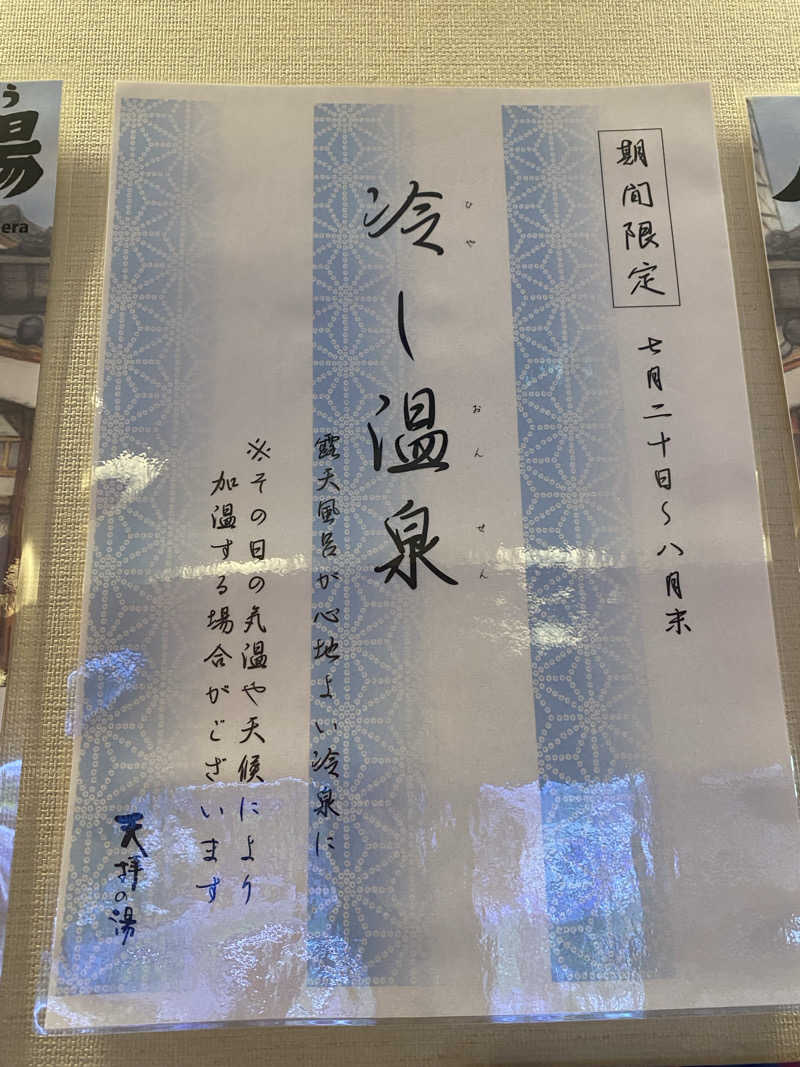 期間限定
七月二十日～八月末
冷し温泉
ひや
おんせん
露天風呂が心地よい冷泉に
※その日の気温や天候により
加温する場合がございます
天拝の湯
う
湯
era